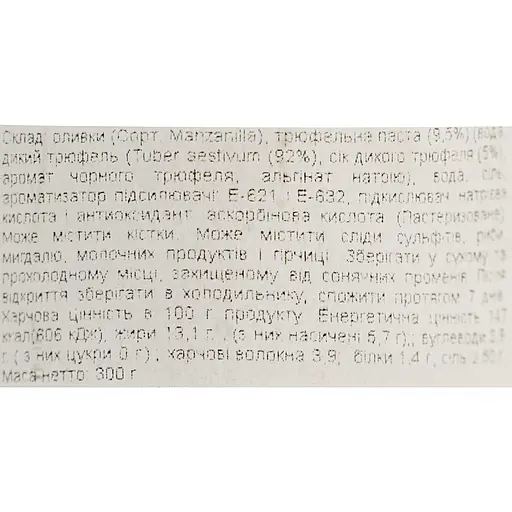 Склад: оливки (Сорт. Manzanilla), трюфельна паста (9,5%) (вода,
дикий трюфель (Tuber aestivum (92%), сік дикого трюфеля (5%),
аромат чорного трюфеля, альгінат натрію), вода, сіль,
ароматизатор підсилювачі: Е-621 і Е-632, підкислювач натрова
кислота і антиоксидант: аскорбінова кислота (Пастеризоване)
Може містити кістки. Може містити сліди сульфітів, риби,
мигдалю, молочних продуктів і гірчиці. Зберігати у сухому та
прохолодному місці, захищеному від сонячних променів. Після
відкриття зберігати в холодильнику, спожити протягом 7 днів
Харчова цінність в 100 г продукту Енергетична цінність 147
ккал(606 кДж), жири 13,1 г., (з них насичені 5,7 г),; вуглеводи
г ( з них цукри 0 г) ; харчові волокна 3,9; білки 1,4 г, сіль
Маса нетто: 300 г